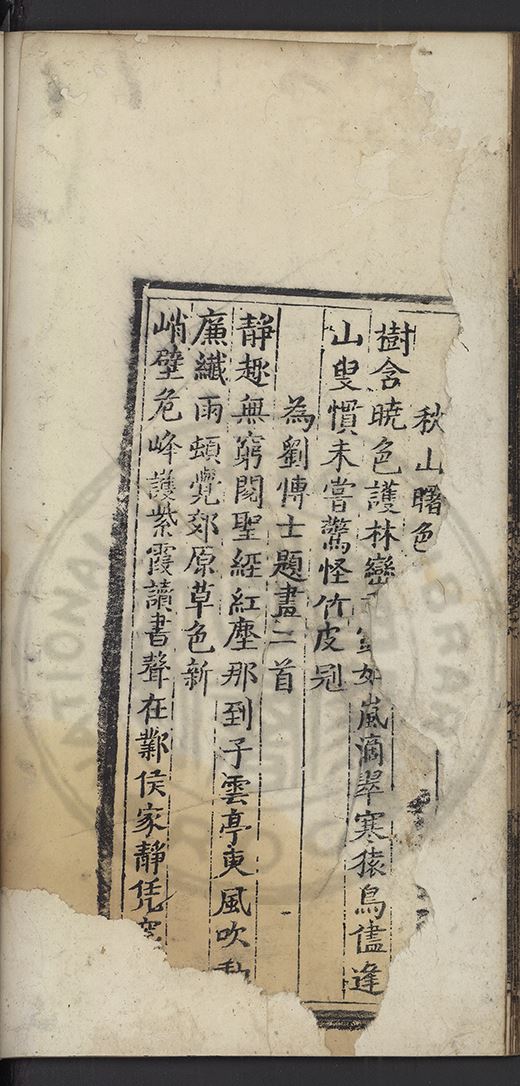 秋山曙色
樹含曉色護林巒嵐滴翠寒猿鳥儘逢
山叟慣未嘗驚怪竹皮冠
為劉愽士題畫二首
静趣無窮閱聖經紅塵那到子雲亭東風吹
廉纖雨頓覺郊原草色新
峭壁危峰護紫霞讀書聲在鄴侯家静凭